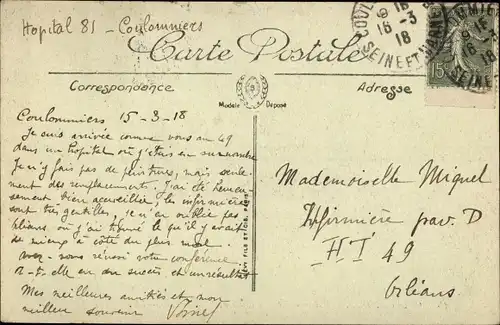 Hopital 81 - Coulommiers
Carte Postale
Correspondance
Adresse
Modèle Déposé
COUL
9 15
16 - 3
18
SEINE ET MARNE
15c
Coulommiers 15-3-18
Je suis arrivée comme vous au 49
dans un hopital où j'étais en surnombre
Je n'y fais pas de peintures, mais seule-
ment des remplacements. J'ai été heureu-
sement bien accueillie, les infirmières
sont très gentilles, je n'en oublie pas
Orléans où j'ai trouvé le qu'il y avait
de mieux à côté du plus mal.
vous réussi votre conférence
a-t-elle eu du succès et un résultat
Mes meilleures amitiés et mon
meilleur souvenir
Mademoiselle Miquel
Infirmière pav. D
HT 49
Orléans